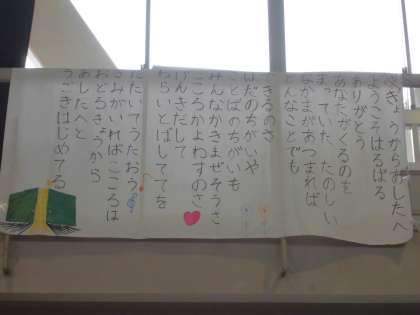 さぁきょうからあしたへ
ようこそはるばる
ありがとう
あなたがくるのを
まっていた たのしい
なかまがあつまれば
どんなことでも
できるのさ
はだのちがいや
ことばのちがいも
みんなかきまぜそうさ
こころかよわすのさ
げんきだして
わらいとばしててを
たたいてうたおう
きみがいればこころは
おどるきょうから
あしたへと
うごきはじめてる